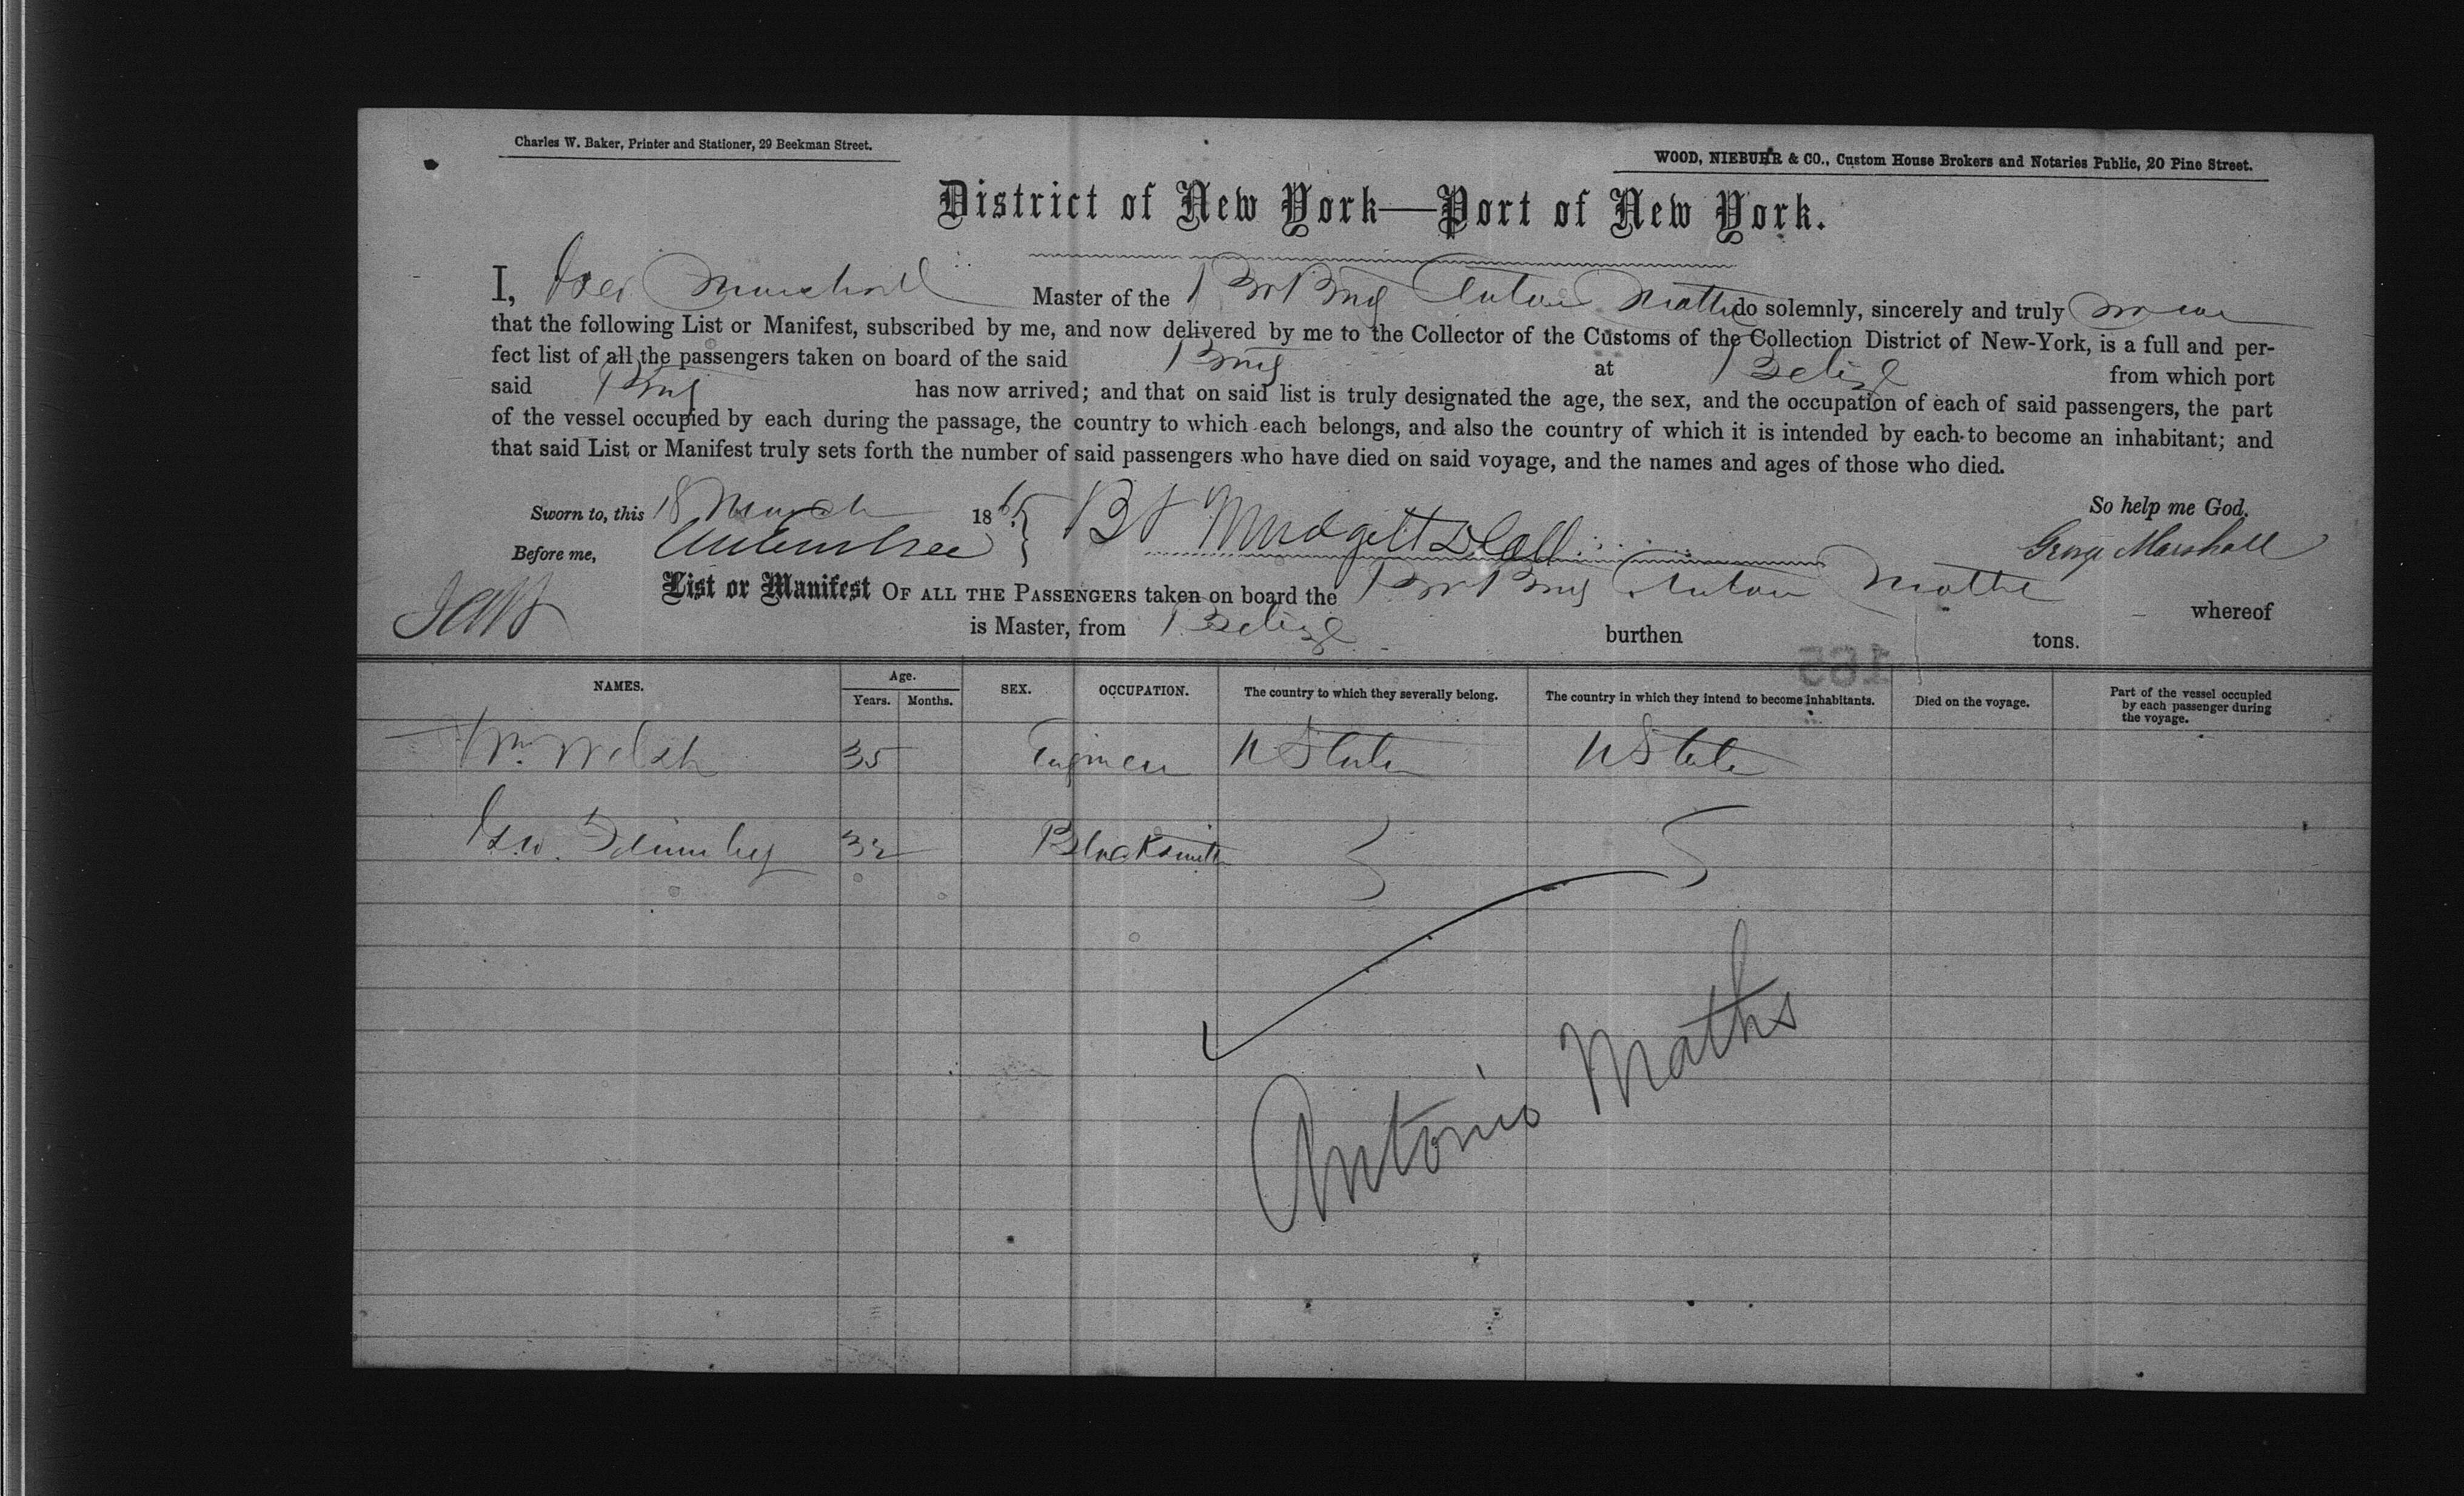 Charles W. Baker, Printer and Stationer, 29 Beekman Street.
WOOD, NIEBUHR & CO., Custom House Brokers and Notaries Public, 20 Pine Street.
District of New York—Port of New York.
I, Geo Marshall Master of the Br Brig Anton Mathe do solemnly, sincerely and truly swear
that the following List or Manifest, subscribed by me, and now delivered by me to the Collector of the Customs of the Collection District of New-York, is a full and per-
fect list of all the passengers taken on board of the said Brig at Belize from which port
said Brig has now arrived; and that on said list is truly designated the age, the sex, and the occupation of each of said passengers, the part
of the vessel occupied by each during the passage, the country to which each belongs, and also the country of which it is intended by each to become an inhabitant; and
that said List or Manifest truly sets forth the number of said passengers who have died on said voyage, and the names and ages of those who died.
Sworn to, this 18 March 1865 So help me God.
Before me, B F Mudgett D Coll George Marshall
List or Manifest OF ALL THE PASSENGERS taken on board the Br Brig Anton Mathe whereof
is Master, from Belize burthen tons.
165
NAMES. Age. Years. Months. SEX. OCCUPATION. The country to which they severally belong. The country in which they intend to become inhabitants. Died on the voyage. Part of the vessel occupied by each passenger during the voyage.
Wm. Welsh 35 Engineer U States U States
Geo. 32 Blacksmith
Antonio Maths